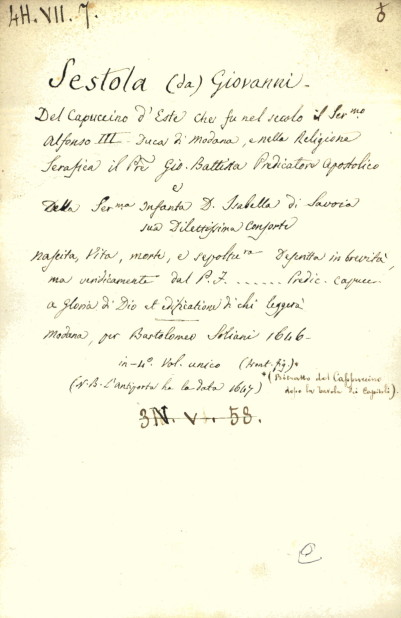 4H. VII. 7.
Sestola (da) Giovanni.
Del Capuccino d'Este che fu nel secolo il Ser.mo
Alfonso III. Duca di Modana, e nella Religione
Serafica il Pre Gio. Battista Predicatore Apostolico
e
Della Ser.ma Infanta D. Isabella di Savoia
sua Dilettissima Consorte
nascita, Vita, morte, e sepoltura Descritta in brevità,
ma veridicamente dal P. F. ....... Predic. Capucc.
a gloria di Dio et edificatione di chi leggerà
Modana, per Bartolomeo Soliani 1646-
in-4°. Vol. unico (front. fig.)*
(N.B. L'Antiporta ha la data 1647)
*(Ritratto del Cappuccino
dopo la tavola dei Capitoli).
3N. V. 58.